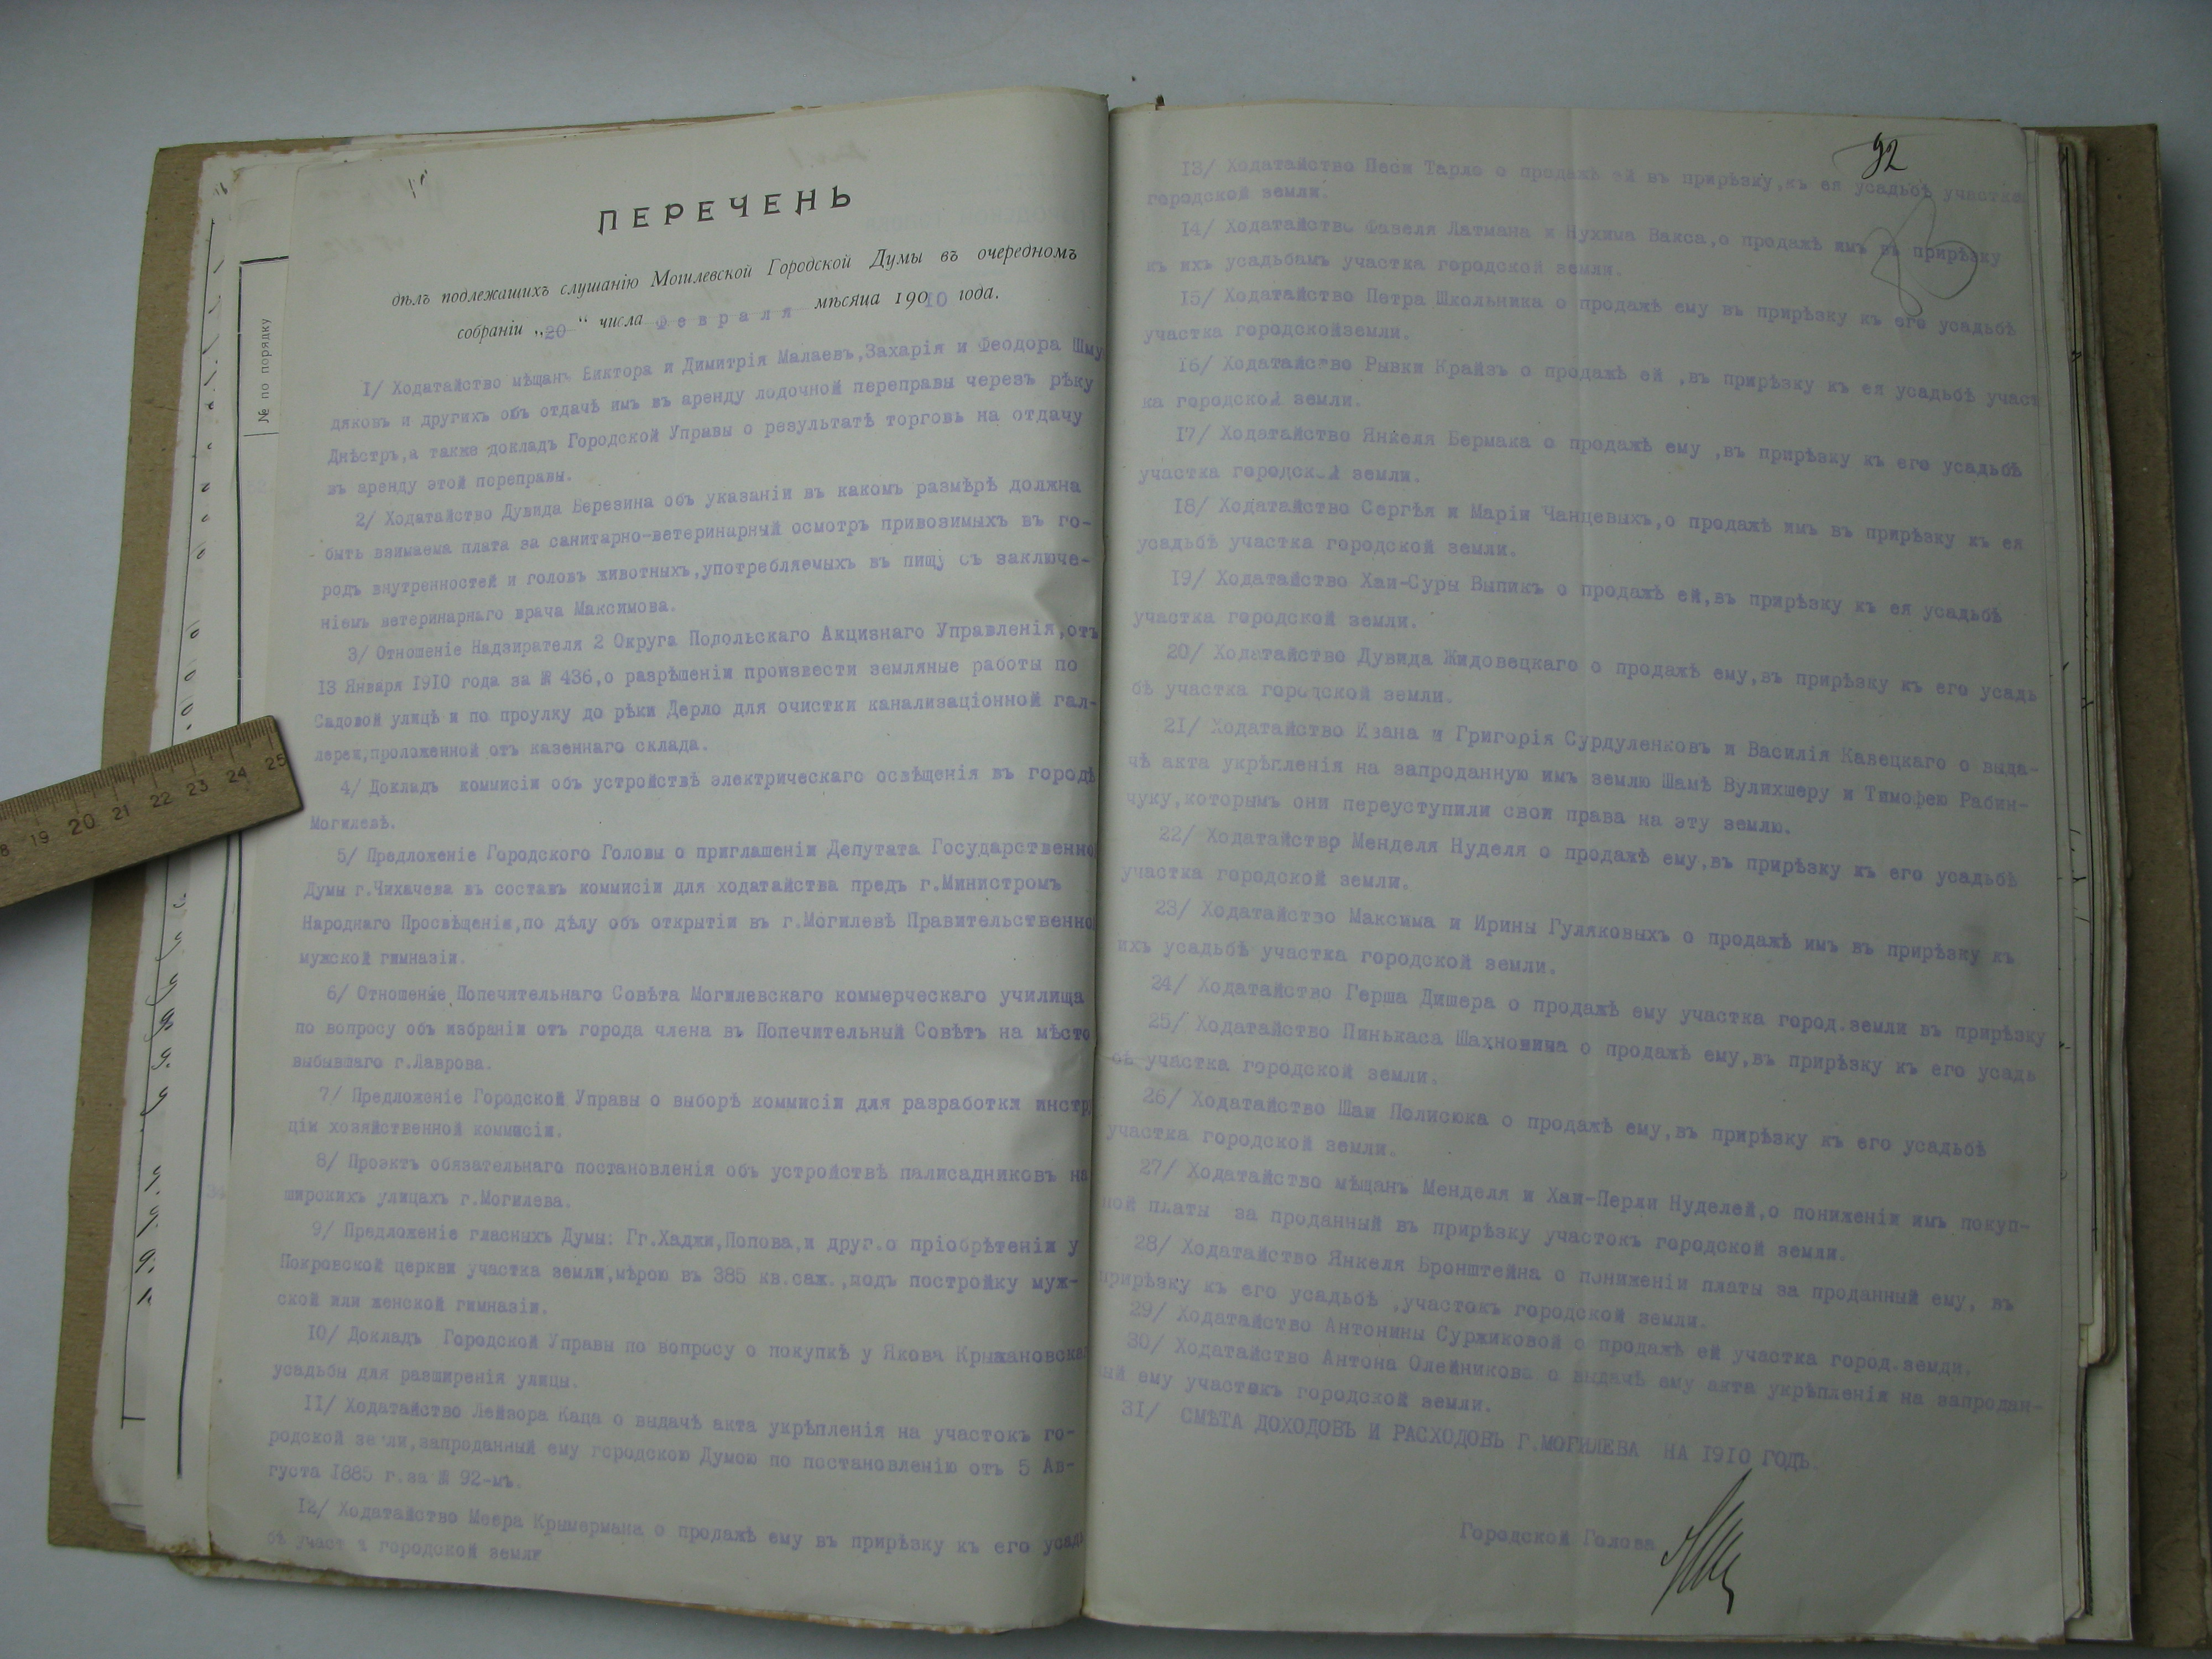 ПЕРЕЧЕНЬ
дѣлъ подлежащихъ слушанію Могилевской Городской Думы въ очередномъ
собраніи „20“ числа Февраля мѣсяца 190 10 года.
№ по порядку
1/ Ходатайство мѣщанъ Виктора и Димитрія Малаевъ,Захарія и Феодора Шму
дяковъ и другихъ объ отдачѣ имъ въ аренду лодочной переправы черезъ рѣку
Днѣстръ,а также докладъ Городской Управы о результатѣ торговъ на отдачу
въ аренду этой переправы.
2/ Ходатайство Дувида Березина объ указаніи въ какомъ размѣрѣ должна
быть взимаема плата за санитарно-ветеринарный осмотръ привозимыхъ въ го-
родъ внутренностей и головъ животныхъ,употребляемыхъ въ пищу съ заключе-
ніемъ ветеринарнаго врача Максимова.
3/ Отношеніе Надзирателя 2 Округа Подольскаго Акцизнаго Управленія,отъ
13 Января 1910 года за № 436,о разрѣшеніи произвести земляные работы по
Садовой улицѣ и по проулку до рѣки Дерло для очистки канализаціонной гал-
лереи,проложенной отъ казеннаго склада.
4/ Докладъ коммисіи объ устройствѣ электрическаго освѣщенія въ городѣ
Могилевѣ.
5/ Предложеніе Городского Головы о приглашеніи Депутата Государственно
Думы г.Чихачева въ составъ коммисіи для ходатайства предъ г.Министромъ
Народнаго Просвѣщенія,по дѣлу объ открытіи въ г.Могилевѣ Правительственно
мужской гимназіи.
6/ Отношеніе Попечительнаго Совѣта Могилевскаго коммерческаго училища
по вопросу объ избраніи отъ города члена въ Попечительный Совѣтъ на мѣсто
выбывшаго г.Лаврова.
7/ Предложеніе Городской Управы о выборѣ коммисіи для разработки инстр
ціи хозяйственной коммисіи.
8/ Проэктъ обязательнаго постановленія объ устройствѣ палисадниковъ на
широкихъ улицахъ г.Могилева.
9/ Предложеніе гласныхъ Думы: Гг.Хаджи,Попова,и друг.о пріобрѣтеніи у
Покровской церкви участка земли,мѣрою въ 385 кв.саж.,подъ постройку муж-
ской или женской гимназіи.
10/ Докладъ Городской Управы по вопросу о покупкѣ у Якова Крыжановска
усадьбы для разширенія улицы.
11/ Ходатайство Лейзора Каца о выдачѣ акта укрѣпленія на участокъ го-
родской земли,запроданный ему городскою Думою по постановленію отъ 5 Ав-
густа 1885 г.за № 92-мъ.
12/ Ходатайство Меера Крымермана о продажѣ ему въ прирѣзку къ его усадь
бѣ участка городской земли
92
13/ Ходатайство Песи Тарло о продажѣ ей въ прирѣзку,къ ея усадьбѣ участка
городской земли.
14/ Ходатайство Фавеля Латмана и Нухима Вакса,о продажѣ имъ въ прирѣзку
къ ихъ усадьбамъ участка городской земли.
15/ Ходатайство Петра Школьника о продажѣ ему въ прирѣзку къ его усадьбѣ
участка городскойземли.
16/ Ходатайство Рывки Крайзъ о продажѣ ей ,въ прирѣзку къ ея усадьбѣ участ
ка городской земли.
17/ Ходатайство Янкеля Бермака о продажѣ ему ,въ прирѣзку къ его усадьбѣ
участка городской земли.
18/ Ходатайство Сергѣя и Маріи Чанцевыхъ,о продажѣ имъ въ прирѣзку къ ея
усадьбѣ участка городской земли.
19/ Ходатайство Хаи-Суры Выпикъ о продажѣ ей,въ прирѣзку къ ея усадьбѣ
участка городской земли.
20/ Ходатайство Дувида Жидовецкаго о продажѣ ему,въ прирѣзку къ его усадь
бѣ участка городской земли.
21/ Ходатайство Ивана и Григорія Сурдуленковъ и Василія Кавецкаго о выда-
чѣ акта укрѣпленія на запроданную имъ землю Шамѣ Вулихшеру и Тимофею Рабин-
чуку,которымъ они переуступили свои права на эту землю.
22/ Ходатайство Менделя Нуделя о продажѣ ему,въ прирѣзку къ его усадьбѣ
участка городской земли.
23/ Ходатайство Максима и Ирины Гуляковыхъ о продажѣ имъ въ прирѣзку къ
ихъ усадьбѣ участка городской земли.
24/ Ходатайство Герша Дишера о продажѣ ему участка город.земли въ прирѣзку
25/ Ходатайство Пинькаса Шахновича о продажѣ ему,въ прирѣзку къ его усадь
бѣ участка городской земли.
26/ Ходатайство Шаи Полисюка о продажѣ ему,въ прирѣзку къ его усадьбѣ
участка городской земли.
27/ Ходатайство мѣщанъ Менделя и Хаи-Перли Нуделей,о пониженіи имъ покуп-
ной платы за проданный въ прирѣзку участокъ городской земли.
28/ Ходатайство Янкеля Бронштейна о пониженіи платы за проданный ему, въ
прирѣзку къ его усадьбѣ ,участокъ городской земли.
29/ Ходатайство Антонины Суржиковой о продажѣ ей участка город.земли.
30/ Ходатайство Антона Олейникова о выдачѣ ему акта укрѣпленія на запродан-
ый ему участокъ городской земли.
31/ СМѢТА ДОХОДОВЪ И РАСХОДОВЪ Г.МОГИЛЕВА НА 1910 ГОДЪ.
Городской Голова
18 19 20 21 22 23 24 25